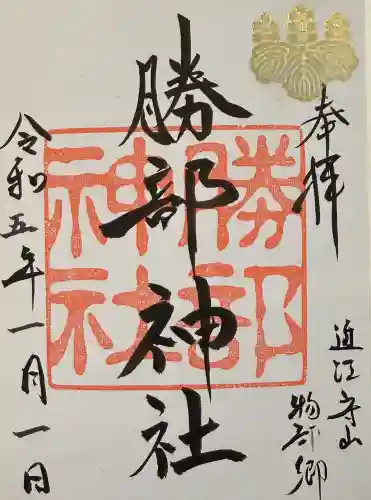 奉拝
近江守山
物部郷
勝部神社
勝部神社
令和五年一月一日